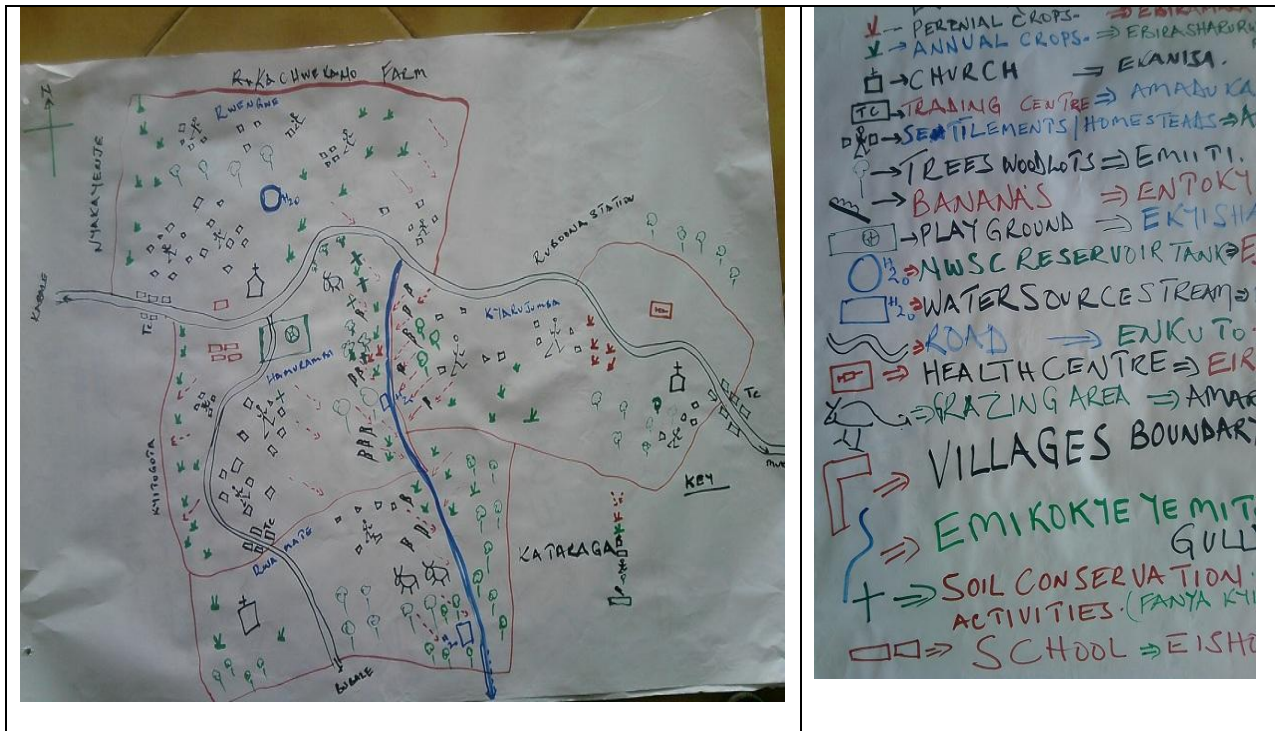 FARM
RWENGYE
N
NYAKAYENJE
H20
RUBOONA STATION
KABALE
KYARUJUMBA
TC
HAMURAMBI
TC
KYITOGOTA
KEY
TC
KATARAGA
RWAMATE
BUBALE
PERENIAL CROPS
ANNUAL CROPS - EBIRASHARUR
CHURCH EKANISA.
TC TRADING CENTRE AMADUKA
SETTILEMENTS/HOMESTEADS A
TREES WOODLOTS EMIITI.
BANANA'S ENTOKY
PLAY GROUND EKYISHA
H20 NWSC RESERVOIR TANK E
H20 WATER SOURCE STREAM
ROAD ENKUTO
HEALTH CENTRE EIR
GRAZING AREA AMAR
VILLAGES BOUNDARY
EMIKOKYE YEMIT
GULLY
SOIL CONSERVATION.
ACTIVITIES. (FANYA KYI
SCHOOL EISHO